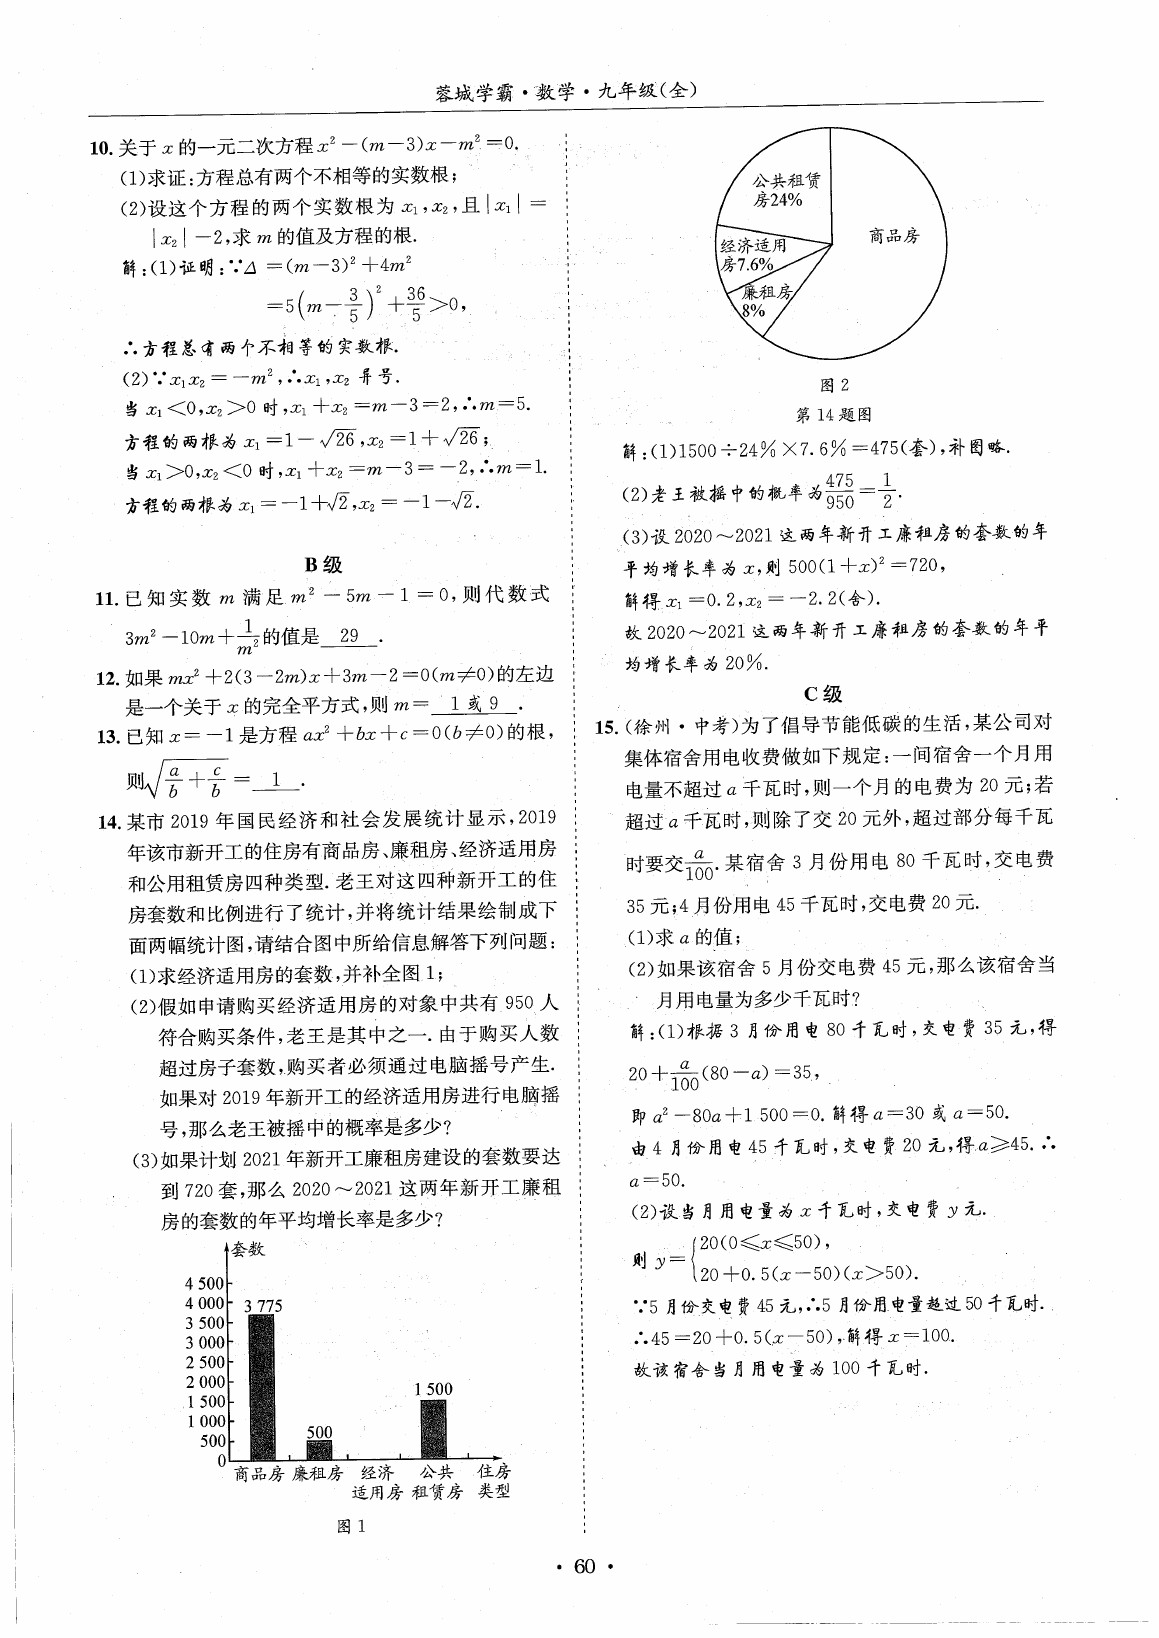 蓉城学霸·数学·九年级(全)
10.关于x的一元二次方程x²-(m-3)x-m²=0.
(1)求证:方程总有两个不相等的实数根;
(2)设这个方程的两个实数根为x₁,x₂,且|x₁|=
|x₂|-2,求m的值及方程的根.
解:(1)证明:∵Δ=(m-3)²+4m²
=5(m-3/5)²+36/5>0,
∴方程总有两个不相等的实数根.
(2)∵x₁x₂=-m²,∴x₁,x₂异号.
当x₁<0,x₂>0时,x₁+x₂=m-3=2,∴m=5.
方程的两根为x₁=1-√26,x₂=1+√26;
当x₁>0,x₂<0时,x₁+x₂=m-3=-2,∴m=1.
方程的两根为x₁=-1+√2,x₂=-1-√2.
B级
11.已知实数m满足m²-5m-1=0,则代数式
3m²-10m+1/m²的值是 29 .
12.如果mx²+2(3-2m)x+3m-2=0(m≠0)的左边
是一个关于x的完全平方式,则m= 1或9 .
13.已知x=-1是方程ax²+bx+c=0(b≠0)的根,
则√(a/b+c/b)= 1 .
14.某市2019年国民经济和社会发展统计显示,2019
年该市新开工的住房有商品房、廉租房、经济适用房
和公用租赁房四种类型.老王对这四种新开工的住
房套数和比例进行了统计,并将统计结果绘制成下
面两幅统计图,请结合图中所给信息解答下列问题:
(1)求经济适用房的套数,并补全图1;
(2)假如申请购买经济适用房的对象中共有950人
符合购买条件,老王是其中之一.由于购买人数
超过房子套数,购买者必须通过电脑摇号产生.
如果对2019年新开工的经济适用房进行电脑摇
号,那么老王被摇中的概率是多少?
(3)如果计划2021年新开工廉租房建设的套数要达
到720套,那么2020~2021这两年新开工廉租
房的套数的年平均增长率是多少?
套数
4 500
4 000
3 500
3 000
2 500
2 000
1 500
1 000
500
0
3 775
500
1 500
商品房 廉租房 经济 公共 住房
适用房 租赁房 类型
图1
公共租赁
房24%
商品房
经济适用
房7.6%
廉租房
8%
图2
第14题图
解:(1)1500÷24%×7.6%=475(套),补图略.
(2)老王被摇中的概率为475/950=1/2.
(3)设2020~2021这两年新开工廉租房的套数的年
平均增长率为x,则500(1+x)²=720,
解得x₁=0.2,x₂=-2.2(舍).
故2020~2021这两年新开工廉租房的套数的年平
均增长率为20%.
C级
15.(徐州·中考)为了倡导节能低碳的生活,某公司对
集体宿舍用电收费做如下规定:一间宿舍一个月用
电量不超过a千瓦时,则一个月的电费为20元;若
超过a千瓦时,则除了交20元外,超过部分每千瓦
时要交a/100.某宿舍3月份用电80千瓦时,交电费
35元;4月份用电45千瓦时,交电费20元.
(1)求a的值;
(2)如果该宿舍5月份交电费45元,那么该宿舍当
月用电量为多少千瓦时?
解:(1)根据3月份用电80千瓦时,交电费35元,得
20+a/100(80-a)=35,
即a²-80a+1 500=0.解得a=30或a=50.
由4月份用电45千瓦时,交电费20元,得a≥45.∴
a=50.
(2)设当月用电量为x千瓦时,交电费y元.
则y={20(0≤x≤50),
20+0.5(x-50)(x>50).
∵5月份交电费45元,∴5月份用电量超过50千瓦时.
∴45=20+0.5(x-50),解得x=100.
故该宿舍当月用电量为100千瓦时.
·60·